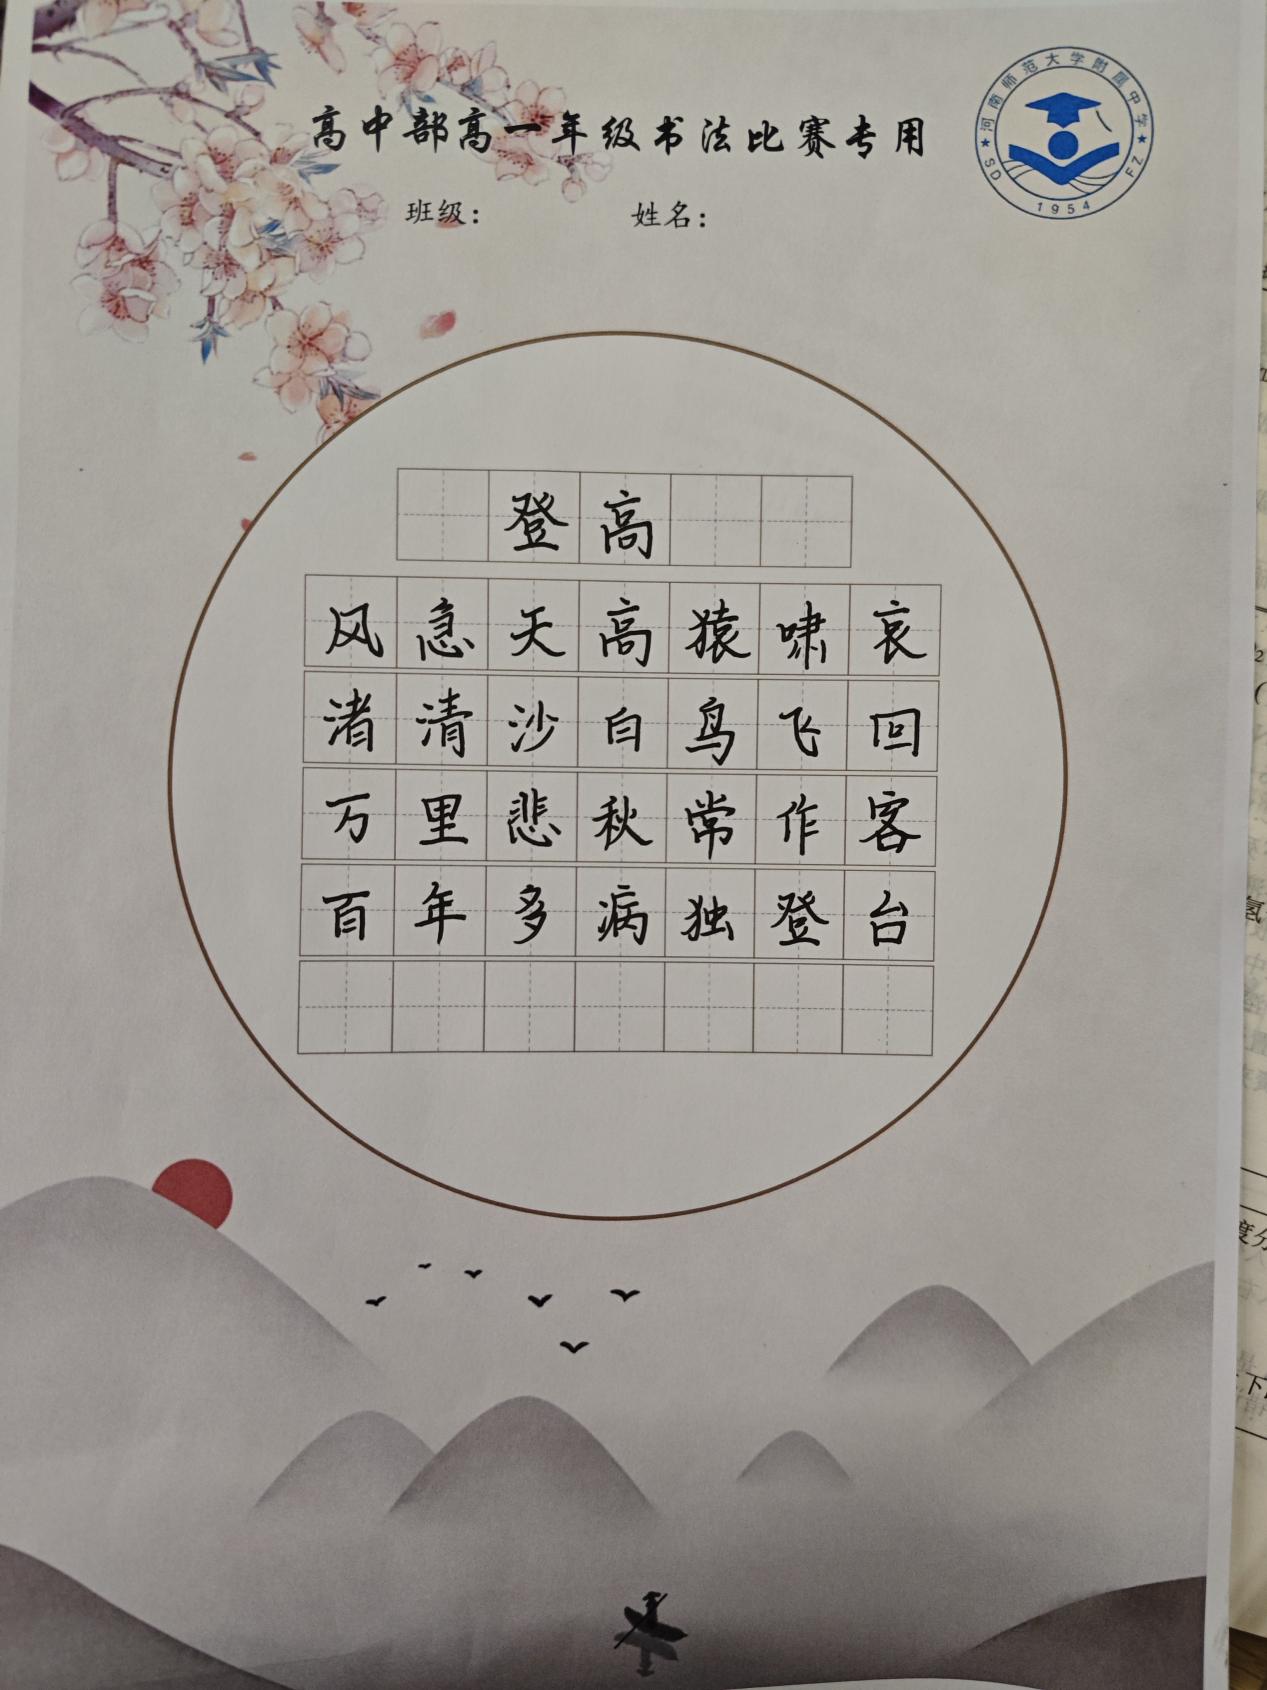 高中部高一年级书法比赛专用
河南师范大学附属中学
SD
FZ
1954
班级：
姓名：
登高
风急天高猿啸哀
渚清沙白鸟飞回
万里悲秋常作客
百年多病独登台
氢
度分
下